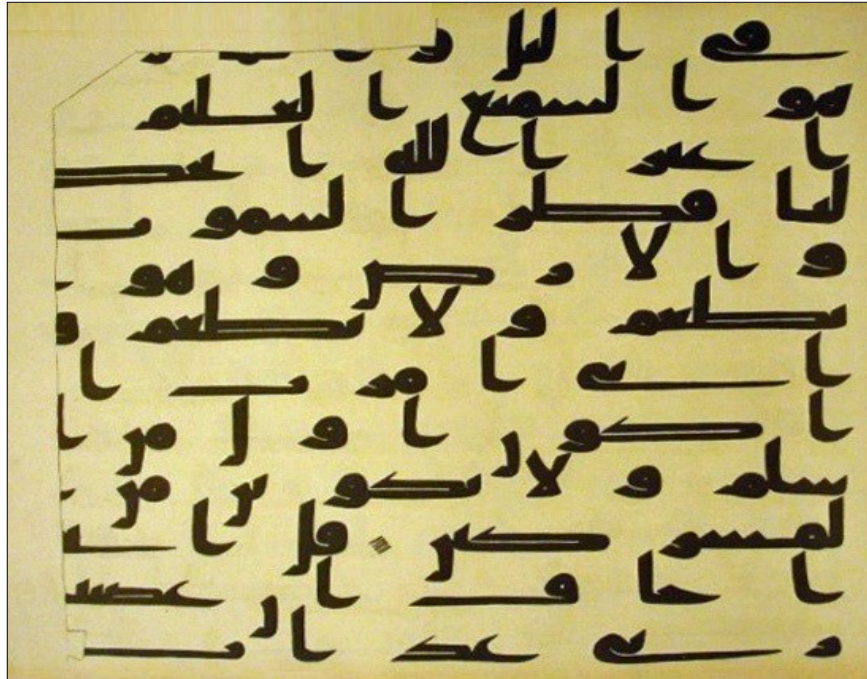 في اليل و
هو السميع العليم
اغير الله اتخذ
ليا فطر السموت
والارض وهو
يطعم ولا يطعم
اني امرت ا
اكون اول من ا
سلم ولا تكونن من ا
لمشركين قل اني
اخاف ان عصيت
ربي عذاب